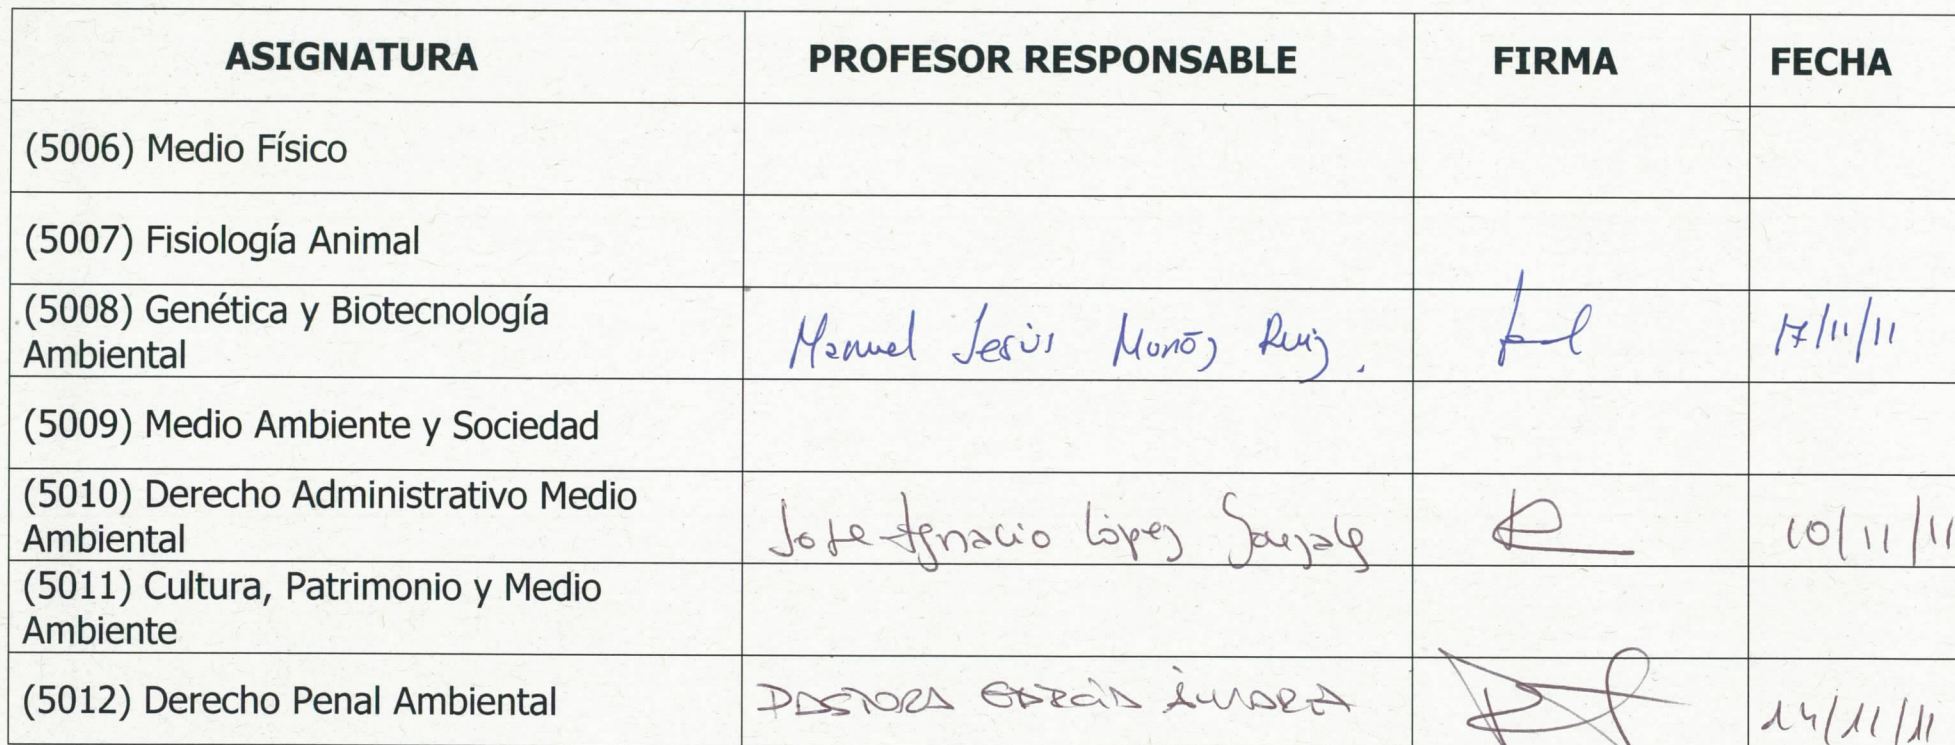 ASIGNATURA PROFESOR RESPONSABLE FIRMA FECHA
(5006) Medio Físico
(5007) Fisiología Animal
(5008) Genética y Biotecnología
Ambiental
Manuel Jesús Muñoz Ruiz. 17/11/11
(5009) Medio Ambiente y Sociedad
(5010) Derecho Administrativo Medio
Ambiental
Jose Ignacio López González 10/11/11
(5011) Cultura, Patrimonio y Medio
Ambiente
(5012) Derecho Penal Ambiental PASTORA GARCÍA ÁLVAREZ 14/11/11